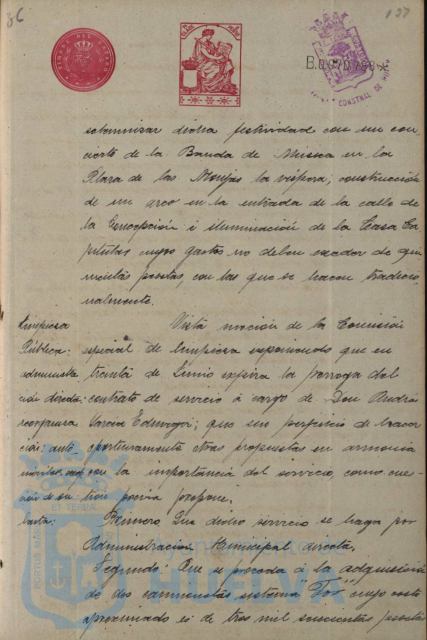 86
137
B.0.070.788
solemnizar dicha festividad con un con-
cierto de la Banda de Música en la
Plaza de las Monjas la víspera, construcción
de un arco en la entrada de la calle de
la Concepción i iluminación de la Casa Ca-
pitular cuyos gastos no deben exceder de qui-
nientas pesetas, con las que se hacen tradicio-
nalmente.
Limpieza
Pública:
administra-
ción directa:
autó-
móviles,
ción de su-
basta:
Vista moción de la Comisión
especial de limpieza exponiendo que en
treinta de Junio expira la prórroga del
contrato de servicio á cargo de Don Andrés
García que sin perjuicio de traer
oportunamente otras propuestas en armonía
con la importancia del servicio, como cues-
tión previa propone.
Primero. Que dicho servicio se haga por
Administración Municipal directa.
Segundo: Que se proceda á la adquisición
de dos camionetas sistema "For" cuyo costo
aproximado es de tres mil pesetas
PORTUS MARIS ET TERRAE
HUELVA